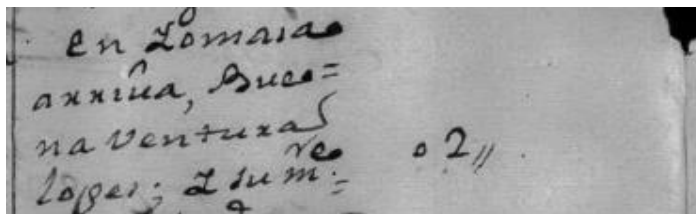 en Lomaia
arriua, Bue=
na Ventura
lopes; I su m.re = 02,,